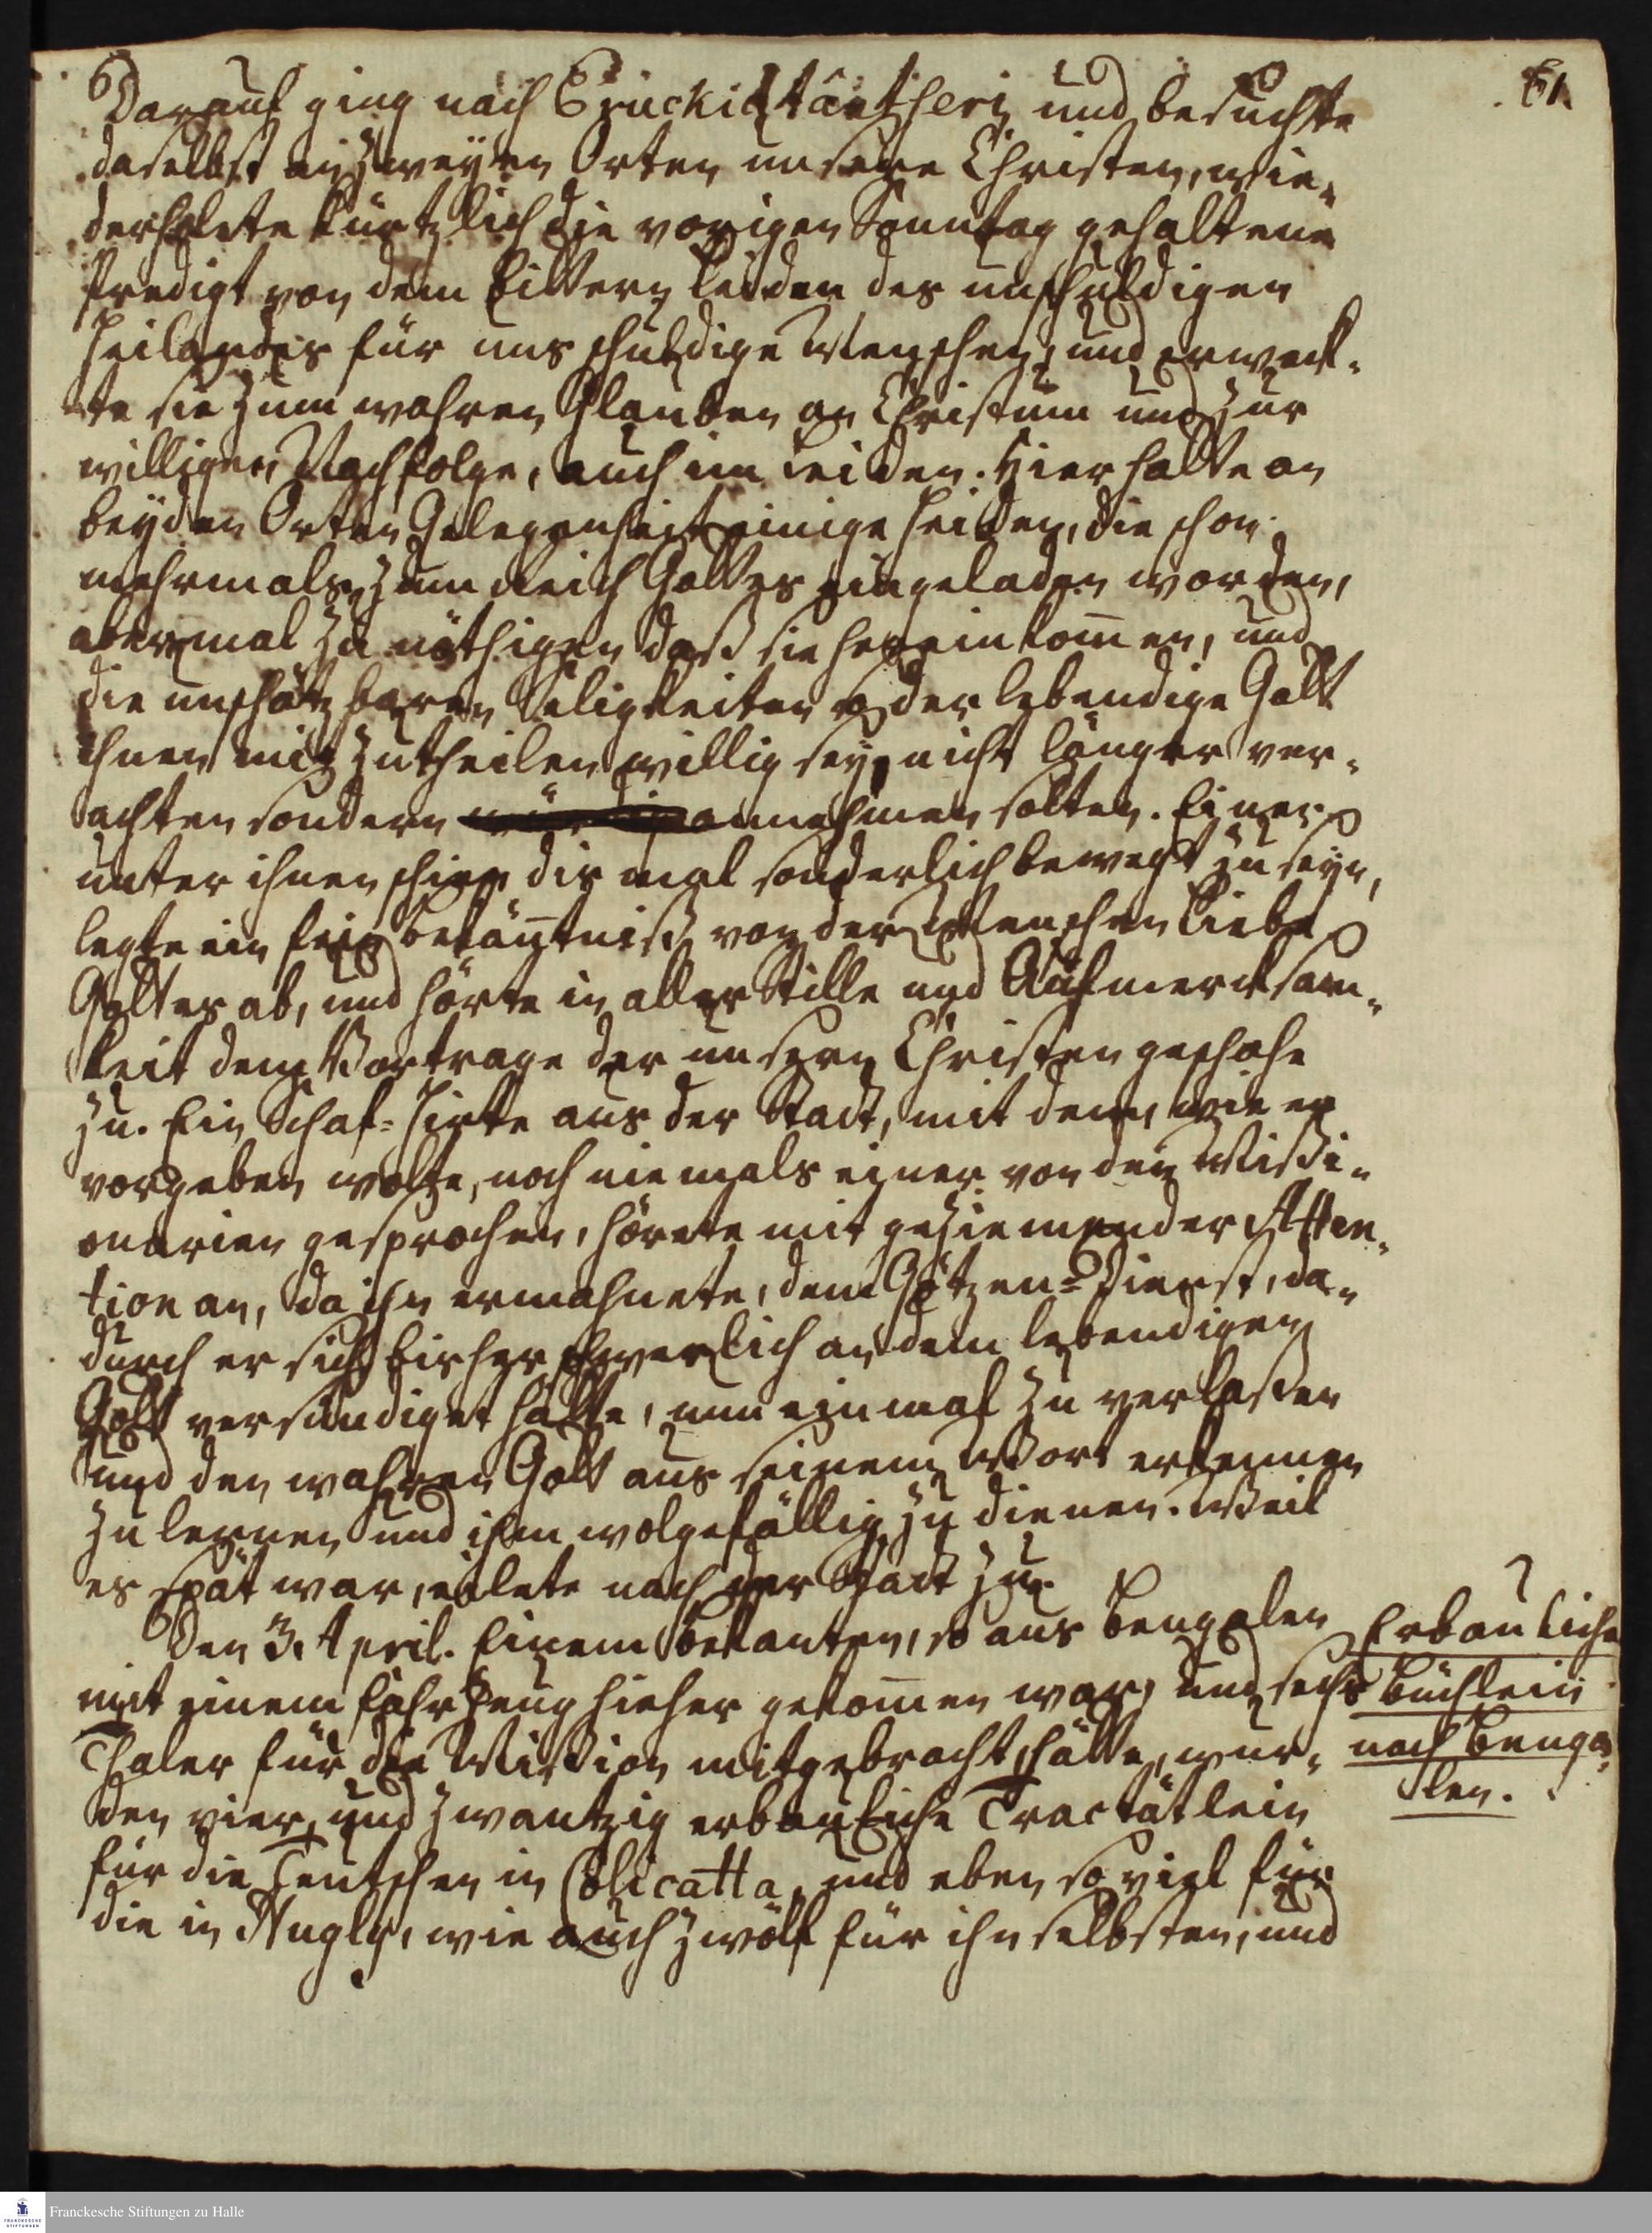 61.
Darauf ging nach Eruckitâncheri und besuchte
daselbst an zweyen Orten unsere Christen, wie-
derholete kürtzlich die vorigen Sonntag gehaltene
Predigt von dem bittern Leiden des unschuldigen
Heilandes für uns schuldige Menschen, und erweck-
te sie zum wahren Glauben an Christum und zur
willigen Nachfolge, auch im Leiden. Hier hatte an
beyden Orten Gelegenheit einige Heiden, die schon
mehrmals zum Reich Gottes eingeladen worden,
abermal zu nöthigen daß sie hereinkom̄en, und
die unschätzbaren Seligkeiten so der lebendige Gott
ihnen mitzutheilen willig sey, nicht länger ver-
achten sondern annehmen solten. Einer
unter ihnen schien dis mal sonderlich bewegt zu seyn,
legte ein fein Bekän̄tniß von der Menschen Liebe
Gottes ab, und hörte in aller Stille und Aufmercksam-
keit dem Vortrage der unsern Christen geschahe
zu. Ein Schaf-Hirte aus der Stadt, mit dem, wie er
vorgeben wolte, noch niemals einer von den Missi-
onarien gesprochen, hörete mit geziemender Atten-
tion an, da ihn ermahnete, dem Götzen-Dienst, da-
durch er sich bisher schwerlich an dem lebendigen
Gott versündiget hätte, nun einmal zu verlassen
und den wahren Gott aus seinem Wort erkennen
zu lernen und ihm wolgefällig zu dienen. Weil
es spät war, eilete nach der Stadt zu.
Den 3. April. Einem Bekanten, so aus Bengalen
mit einem Fahrzeug hieher gekom̄en war, und sechs
Thaler für die Mission mitgebracht hatte, wur-
den vier und zwantzig erbauliche Tractätlein
für die Teutschen in Colicatta, und eben so viel für
die in Hugly, wie auch zwölf für ihn selbsten, und
Erbauliche
Büchlein
nach Benga-
len.
Franckesche Stiftungen zu Halle
FRANCKESCHE
STIFTUNGEN